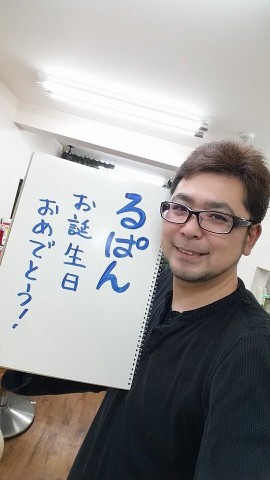 るぱん
お誕生日
おめでとう!